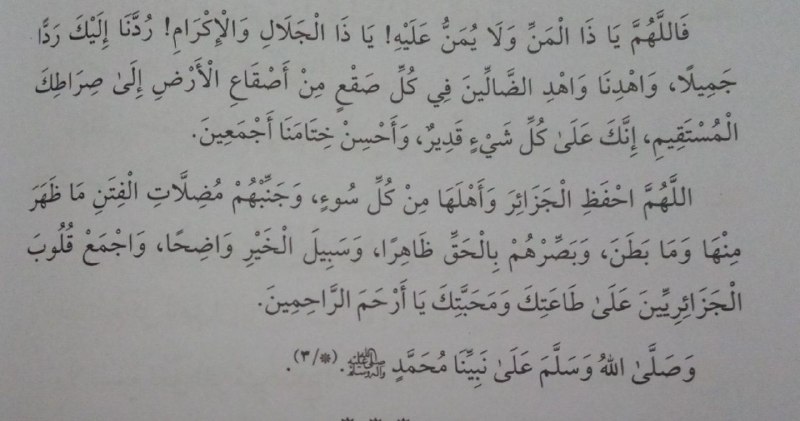 فَاللَّهُمَّ يَا ذَا الْمَنِّ وَلَا يُمَنُّ عَلَيْهِ! يَا ذَا الْجَلَالِ وَالْإِكْرَامِ! رُدَّنَا إِلَيْكَ رَدًّا
جَمِيلًا، وَاهْدِنَا وَاهْدِ الضَّالِّينَ فِي كُلِّ صَقْعٍ مِنْ أَصْقَاعِ الْأَرْضِ إِلَىٰ صِرَاطِكَ
الْمُسْتَقِيمِ، إِنَّكَ عَلَىٰ كُلِّ شَيْءٍ قَدِيرٌ، وَأَحْسِنْ خِتَامَنَا أَجْمَعِينَ.
اللَّهُمَّ احْفَظِ الْجَزَائِرَ وَأَهْلَهَا مِنْ كُلِّ سُوءٍ، وَجَنِّبْهُمْ مُضِلَّاتِ الْفِتَنِ مَا ظَهَرَ
مِنْهَا وَمَا بَطَنَ، وَبَصِّرْهُمْ بِالْحَقِّ ظَاهِرًا، وَسَبِيلَ الْخَيْرِ وَاضِحًا، وَاجْمَعْ قُلُوبَ
الْجَزَائِرِيِّينَ عَلَىٰ طَاعَتِكَ وَمَحَبَّتِكَ يَا أَرْحَمَ الرَّاحِمِينَ.
وَصَلَّىٰ اللهُ وَسَلَّمَ عَلَىٰ نَبِيِّنَا مُحَمَّدٍ ﷺ.(*/٣).
* * *